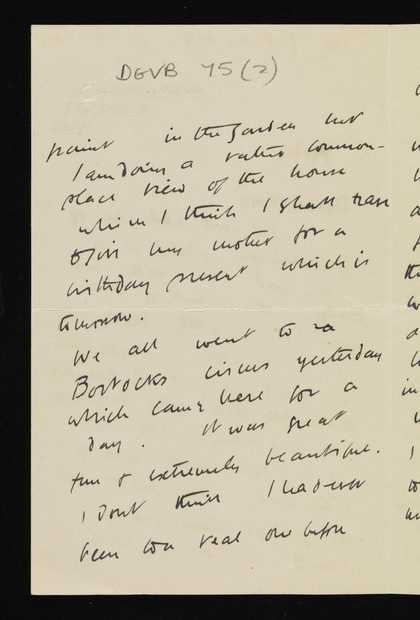 DGVB 75(2)
paint in the garden but
I am doing a rather common-
place view of the house
which I think I shall have
to give my mother for a
birthday present which is
tomorrow.
We all went to
Bostocks circus yesterday
which came here for a
day. It was great
fun & extremely beautiful.
I dont think I had ever
been to a real one before